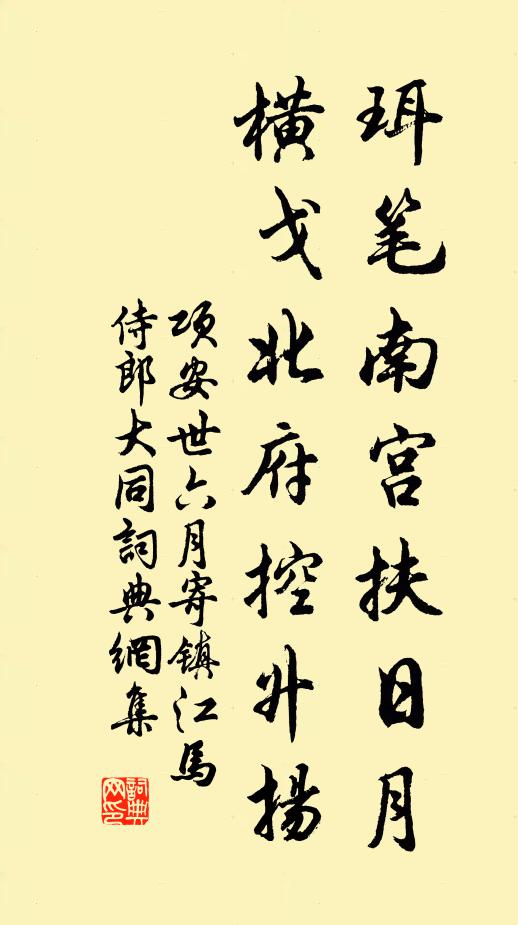 珥笔南宫扶日月
横戈北府控升揚
项安世六月寄镇江馬
侍郎大同詞典網集
詞典
网印